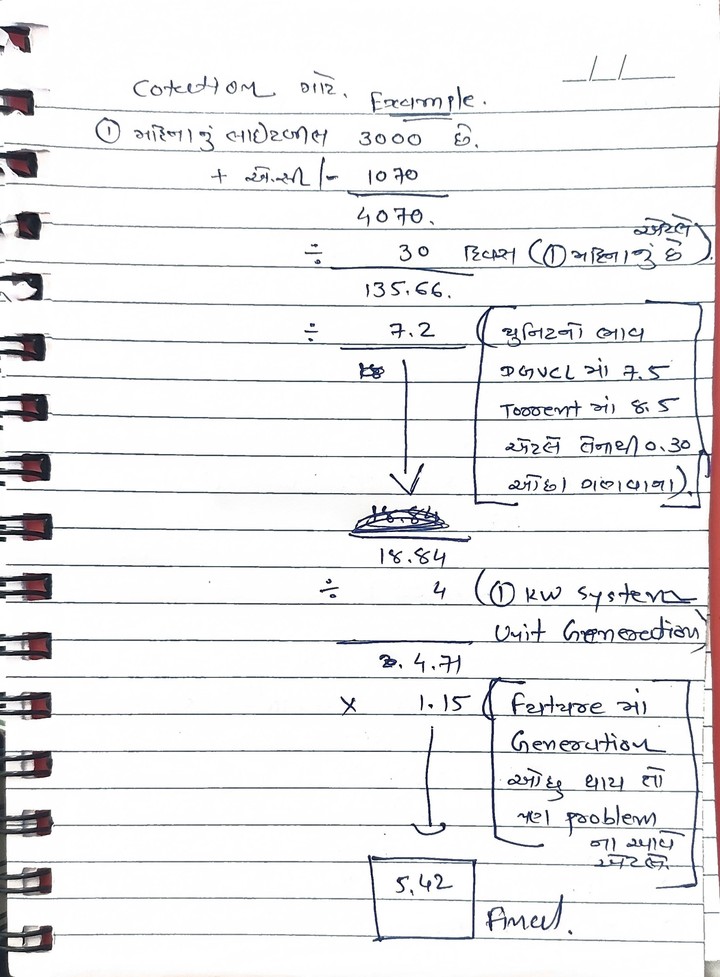 Cotection માટે. Example.
① મહિનાનું લાઈટબીલ 3000 છે.
+ એ.સી /- 1070
4070.
÷ 30 દિવસ (① મહિનાનું છે એટલે)
135.66.
÷ 7.2 (યુનિટનો ભાવ
DGVCL માં 7.5
Torrent માં 8.5
એટલે તેનાથી 0.30
ઓછા ગણવાના).
18.84
÷ 4 (① KW System
Unit Generection)
4.71
× 1.15 (ફ્યુચર માં
Generation
ઓછુ થાય તો
પણ problem
ના આવે
એટલે.
5.42 Final.